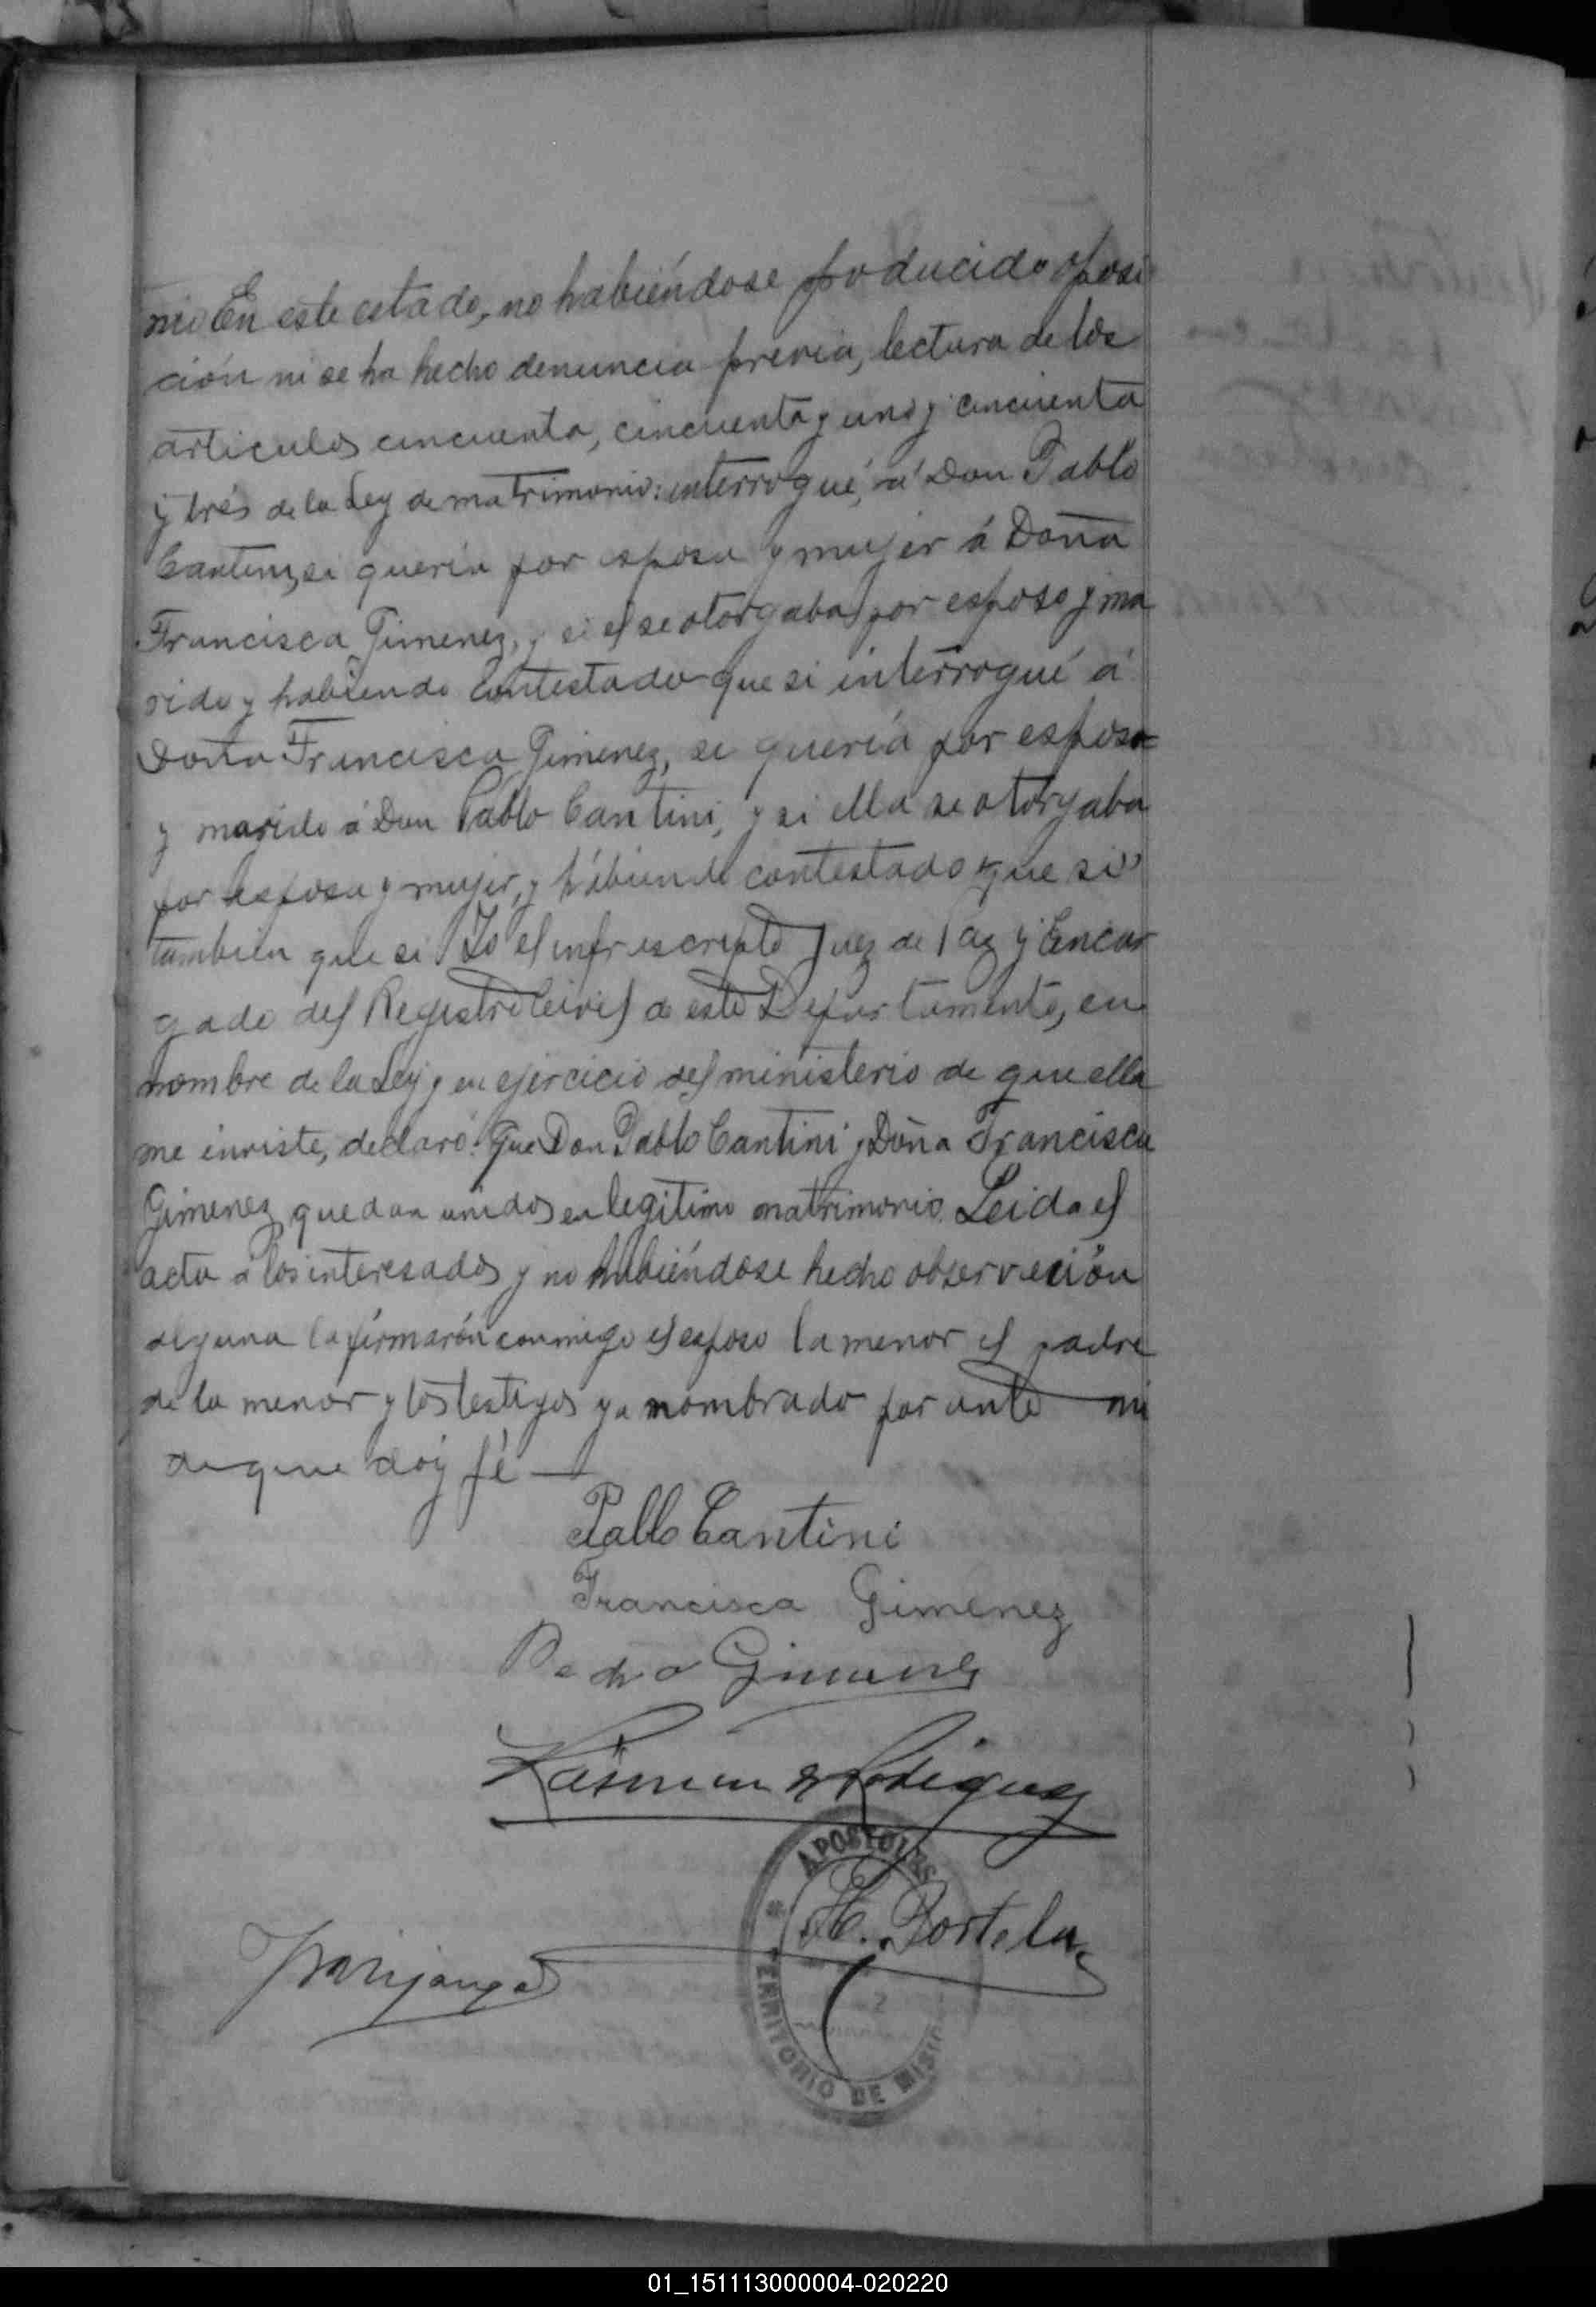 nio En este estado, no habiéndose producido oposi
ción ni se ha hecho denuncia previa, lectura de los
articulos cincuenta, cincuenta y uno y cincuenta
y trés de la Ley de matrimonio: interrogué, á Don Pablo
Cantini, si queria por esposa y mujer á Doña
Francisca Gimenez, y si el se otorgaba por esposo y ma
rido y habiendo contestado que si interrogué á
Doña Francisca Gimenez, si quería por esposo
y marido á Don Pablo Cantini, y si ella se otorgaba
por esposa y mujer, y habiendo contestado que si
tambien que si Yo el infrescripto Juez de Paz y Encar
gado del Registro Civil de este Departamento, en
nombre de la Ley y en ejercicio del ministerio de que ella
me inviste, declaró: Que Don Pablo Cantini y Doña Francisca
Gimenez quedan unidos en legitimo matrimonio. Leida el
acta á los interesados y no habiéndose hecho observación
alguna la firmarón conmigo el esposo la menor el padre
de la menor y los testigos ya nombrado por ante mi
de que doy fé —
Pablo Cantini
Francisca Gimenez
Pedro Gimenez
Rodriguez
APOSTOLES
H. Portela
TERRITORIO DE MISIO
01_151113000004-020220